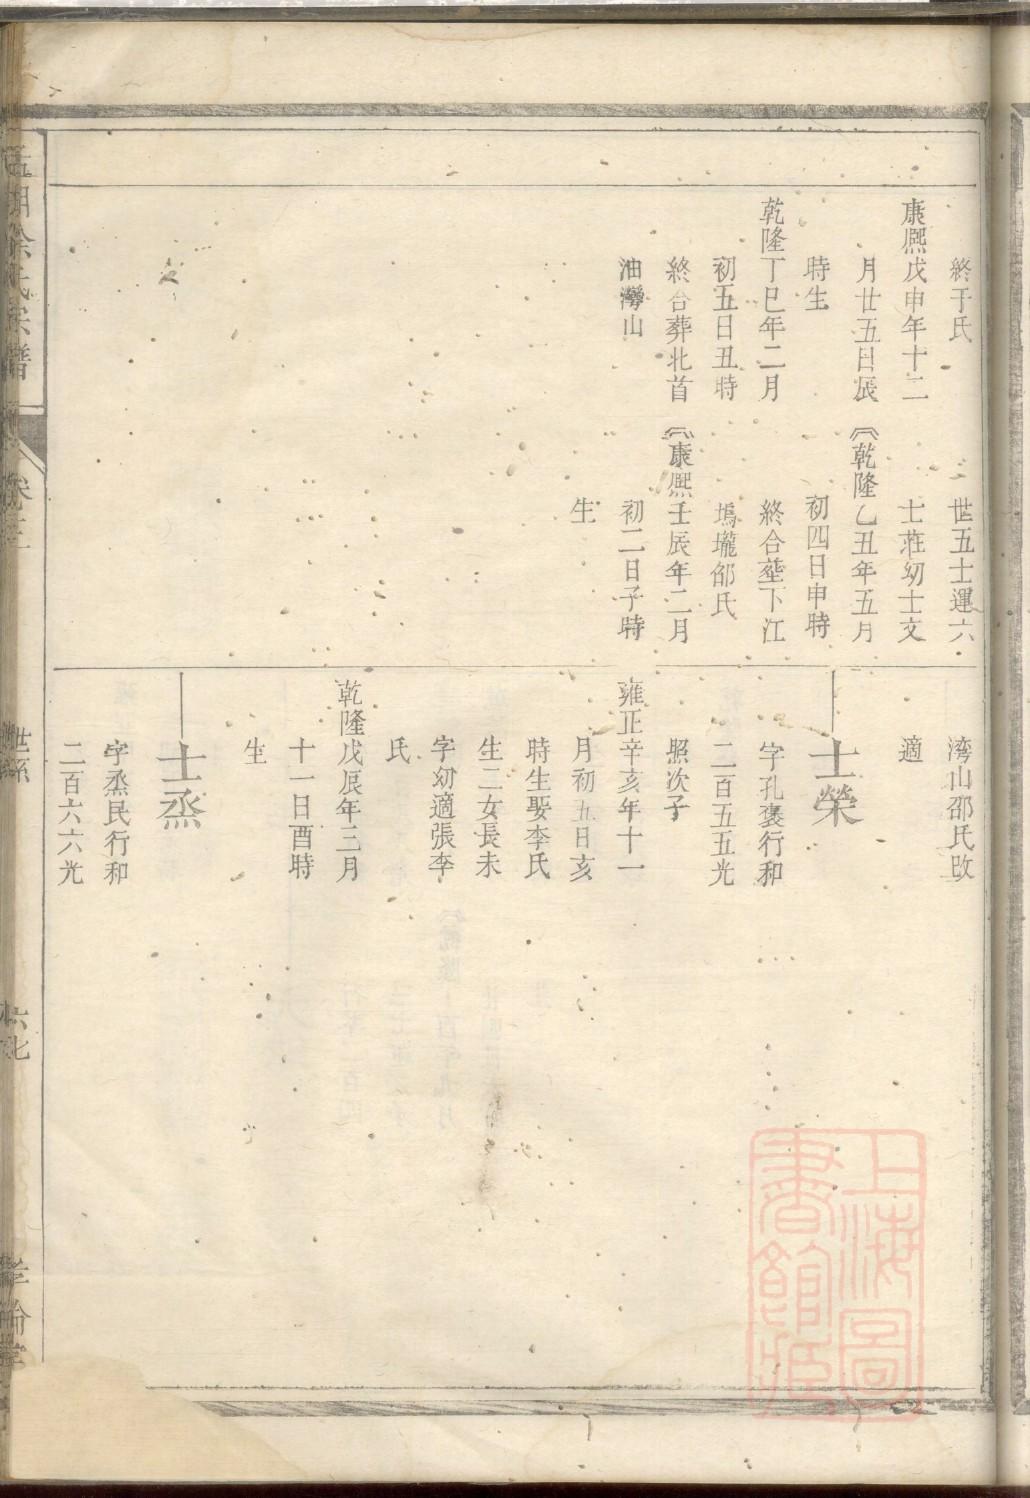 終于氏
康熙戊申年十二
月廿五日辰
時生
乾隆丁巳年二月
初五日丑時
終合葬北首
油灣山
世五士運六
士莊幼士文
乾隆乙丑年五月
初四日申時
終合塟下江
塢壠邵氏
康熙壬辰年二月
初二日子時
生
湾山邵氏改
適
士榮
字孔褒行和
二百五五光
照次子
雍正辛亥年十一
月初五日亥
時生娶李氏
生二女長未
字幼適張李
氏
乾隆戊辰年三月
十一日酉時
生
士烝
字烝民行和
二百六六光
徐氏宗譜
卷三
世系
六
上海圖
書館藏